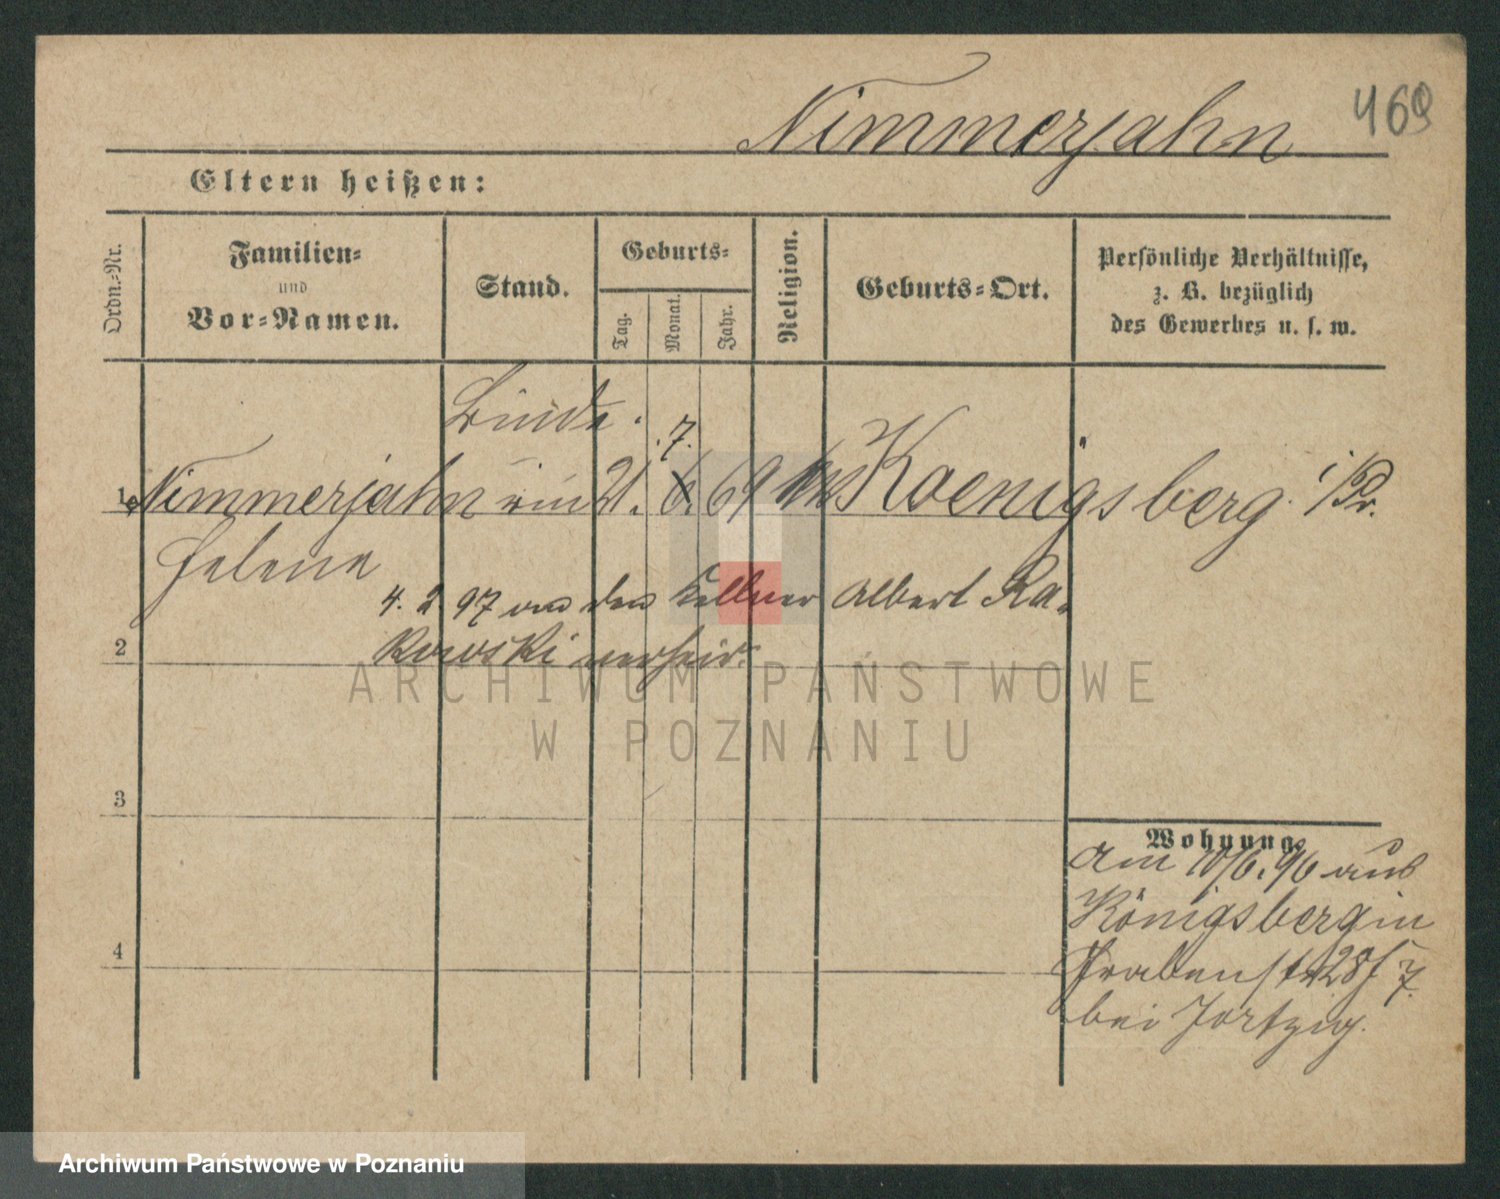 469
Nimmerjahn
Eltern heißen:
Ordn.-Nr.
Familien-
und
Vor-Namen.
Stand.
Geburts-
Tag.
Monat.
Jahr.
Religion.
Geburts-Ort.
Persönliche Verhältnisse,
z. B. bezüglich
des Gewerbes u. s. w.
7.
1 Nimmerjahn 21. 6. 69 Koenigsberg i/Pr.
Helene
4. 2 97 den Kellner Albert Ra-
kowski verheir.
2
ARCHIWUM PAŃSTWOWE
W POZNANIU
3
Wohnung
am 10/6. 96 aus
Königsberg in
4
Grabenstr 28
bei
Archiwum Państwowe w Poznaniu